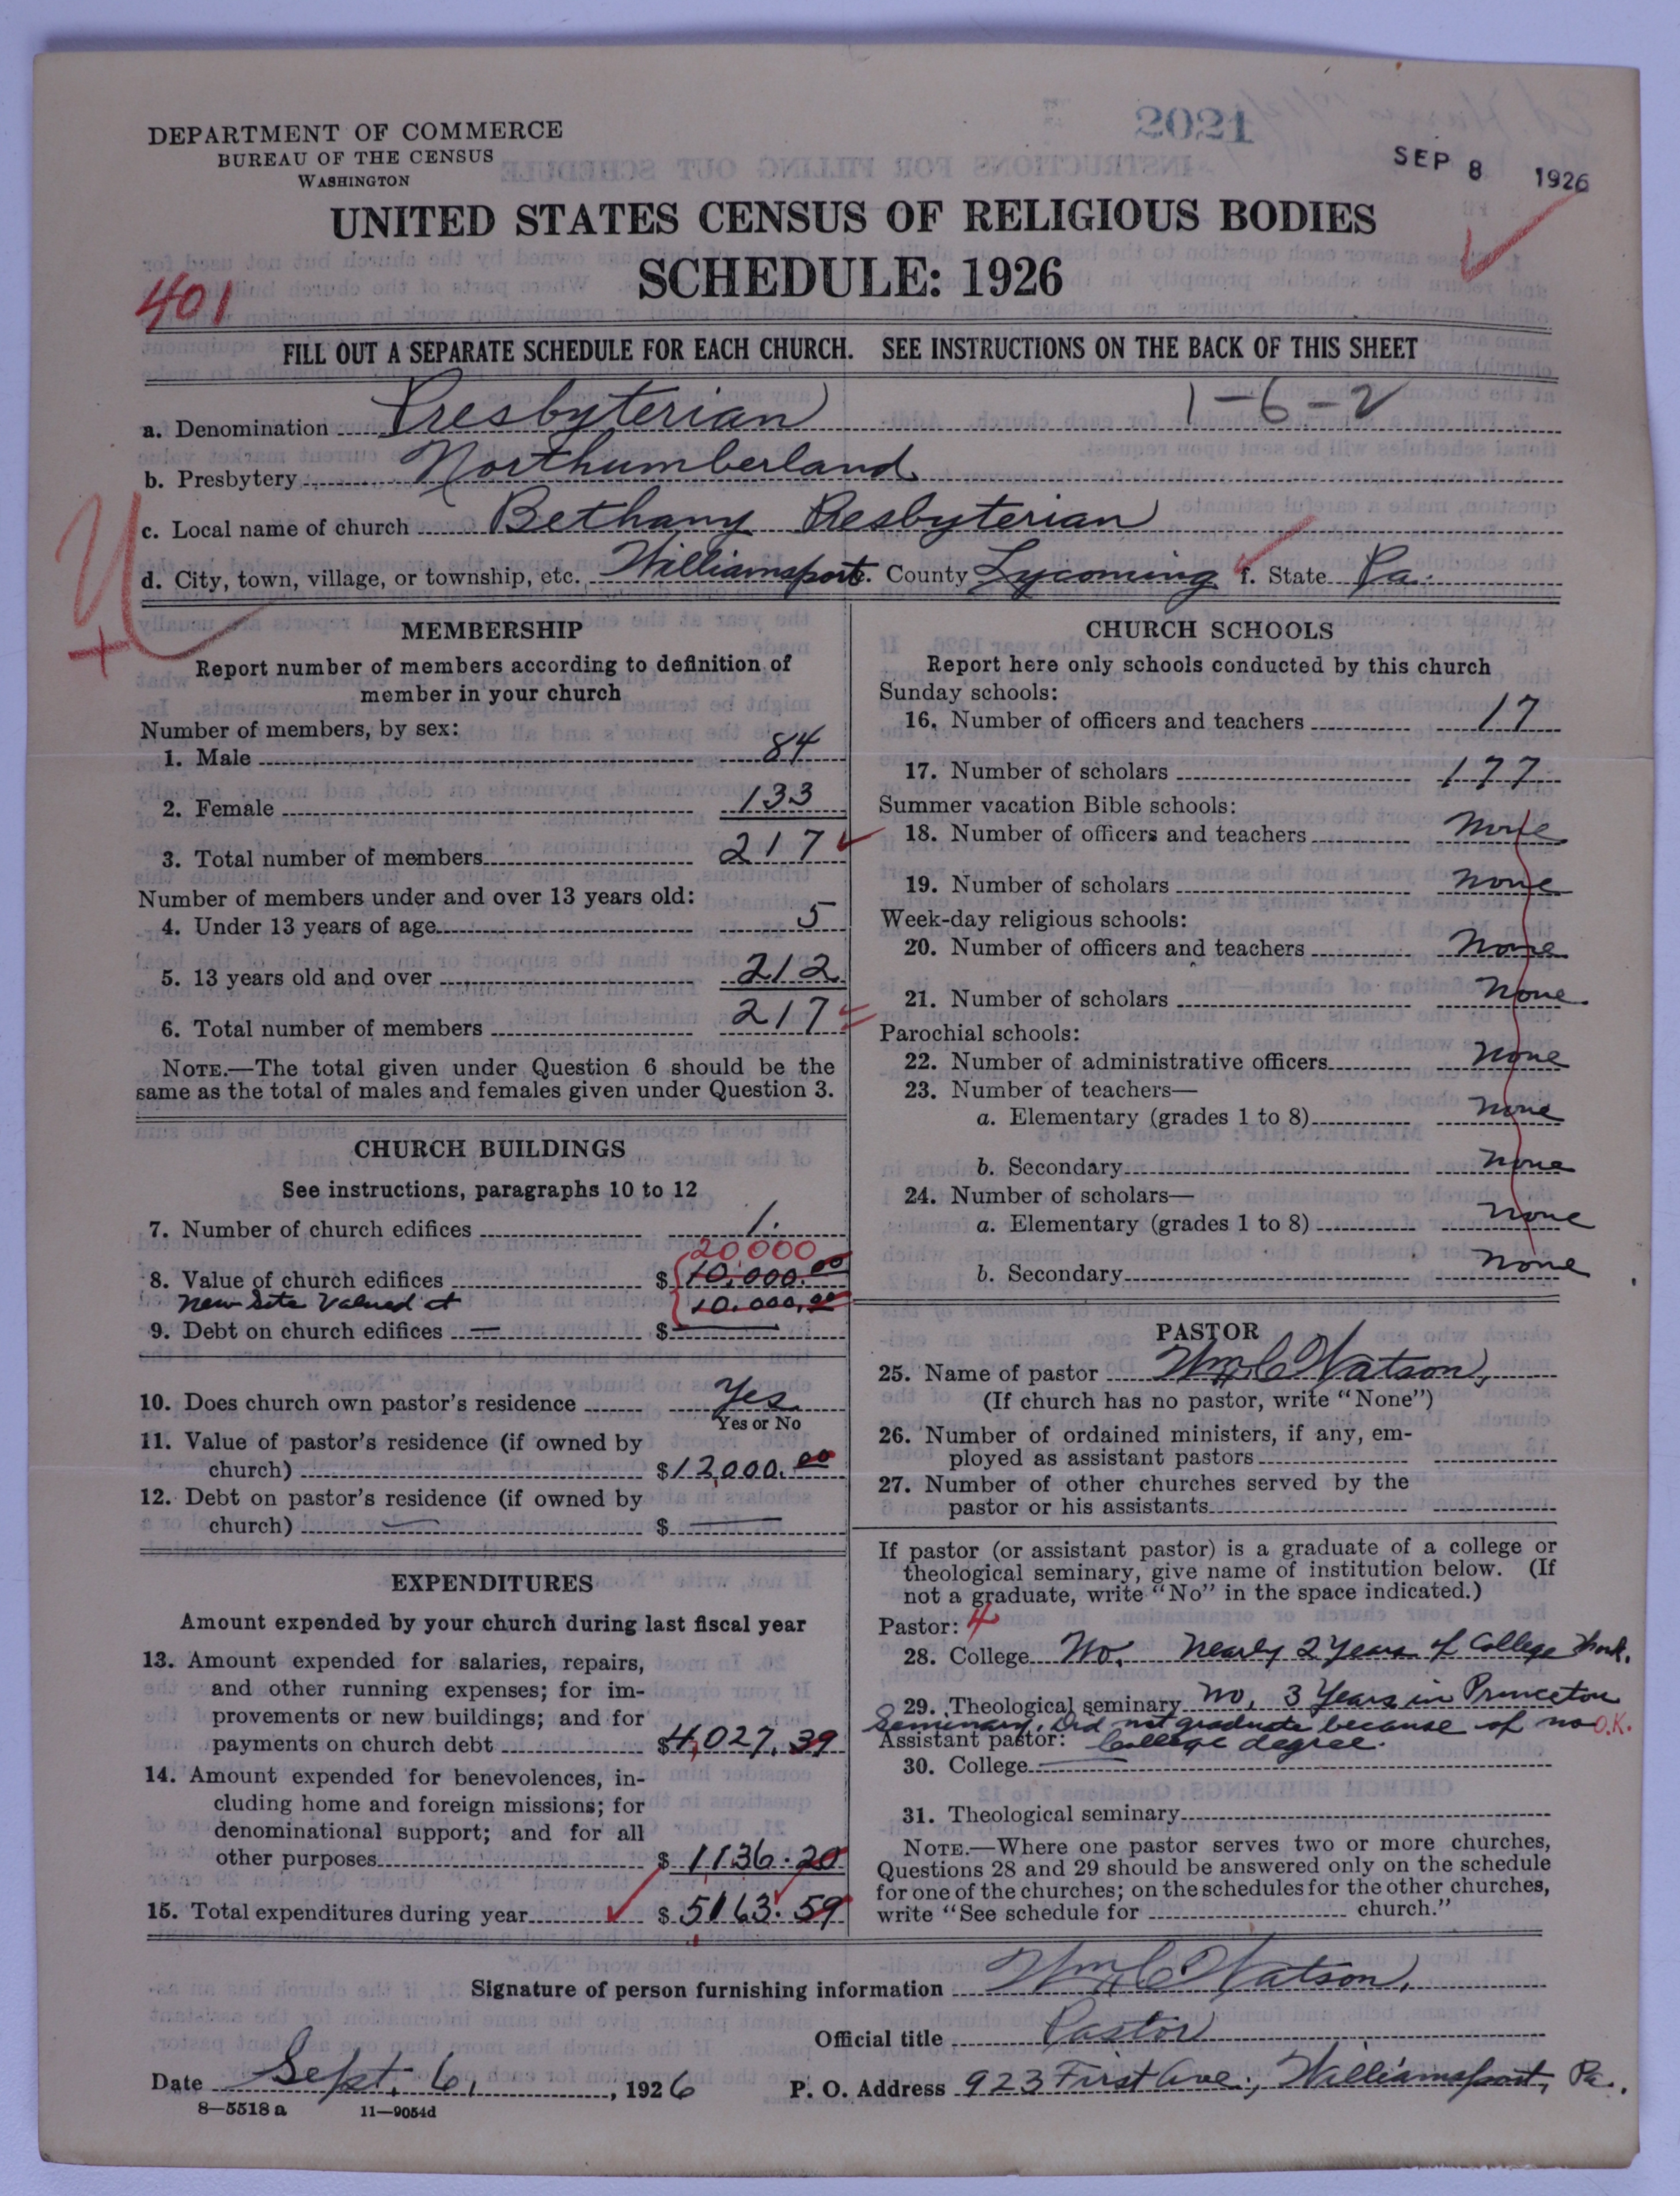 2021
SEP 8 1926
DEPARTMENT OF COMMERCE
BUREAU OF THE CENSUS
WASHINGTON
UNITED STATES CENSUS OF RELIGIOUS BODIES
SCHEDULE: 1926
401
FILL OUT A SEPARATE SCHEDULE FOR EACH CHURCH. SEE INSTRUCTIONS ON THE BACK OF THIS SHEET
a. Denomination Presbyterian 1-6-2
b. Presbytery Northumberland
c. Local name of church Bethany Presbyterian
d. City, town, village, or township, etc. Williamsport e. County Lycoming f. State Pa.
MEMBERSHIP
Report number of members according to definition of
member in your church
Number of members, by sex:
1. Male 84
2. Female 133
3. Total number of members 217
Number of members under and over 13 years old:
4. Under 13 years of age 5
5. 13 years old and over 212
6. Total number of members 217
NOTE.—The total given under Question 6 should be the
same as the total of males and females given under Question 3.
CHURCH BUILDINGS
See instructions, paragraphs 10 to 12
7. Number of church edifices 1.
20000
8. Value of church edifices $ 10,000.00
New Site Valued at 10,000.00
9. Debt on church edifices — $ —
10. Does church own pastor's residence Yes
Yes or No
11. Value of pastor's residence (if owned by
church) $ 12,000.00
12. Debt on pastor's residence (if owned by
church) — $ —
EXPENDITURES
Amount expended by your church during last fiscal year
13. Amount expended for salaries, repairs,
and other running expenses; for im-
provements or new buildings; and for
payments on church debt $ 4,027.39
14. Amount expended for benevolences, in-
cluding home and foreign missions; for
denominational support; and for all
other purposes $ 1136.20
15. Total expenditures during year $ 5163.59
CHURCH SCHOOLS
Report here only schools conducted by this church
Sunday schools:
16. Number of officers and teachers 17
17. Number of scholars 177
Summer vacation Bible schools:
18. Number of officers and teachers None
19. Number of scholars None
Week-day religious schools:
20. Number of officers and teachers None
21. Number of scholars None
Parochial schools:
22. Number of administrative officers None
23. Number of teachers—
a. Elementary (grades 1 to 8) None
b. Secondary None
24. Number of scholars—
a. Elementary (grades 1 to 8) None
b. Secondary None
PASTOR
25. Name of pastor Wm C Watson,
(If church has no pastor, write "None")
26. Number of ordained ministers, if any, em-
ployed as assistant pastors
27. Number of other churches served by the
pastor or his assistants
If pastor (or assistant pastor) is a graduate of a college or
theological seminary, give name of institution below. (If
not a graduate, write "No" in the space indicated.)
Pastor: 4
28. College No. Nearly 2 Years of College Work.
29. Theological seminary No, 3 Years in Princeton
Seminary. Did not graduate because of no O.K.
Assistant pastor: College degree.
30. College —
31. Theological seminary
NOTE.—Where one pastor serves two or more churches,
Questions 28 and 29 should be answered only on the schedule
for one of the churches; on the schedules for the other churches,
write "See schedule for church."
Signature of person furnishing information Wm C Watson,
Official title Pastor
Date Sept. 6, , 1926 P. O. Address 923 First Ave., Williamsport, Pa.
8—5518 a 11—9054d